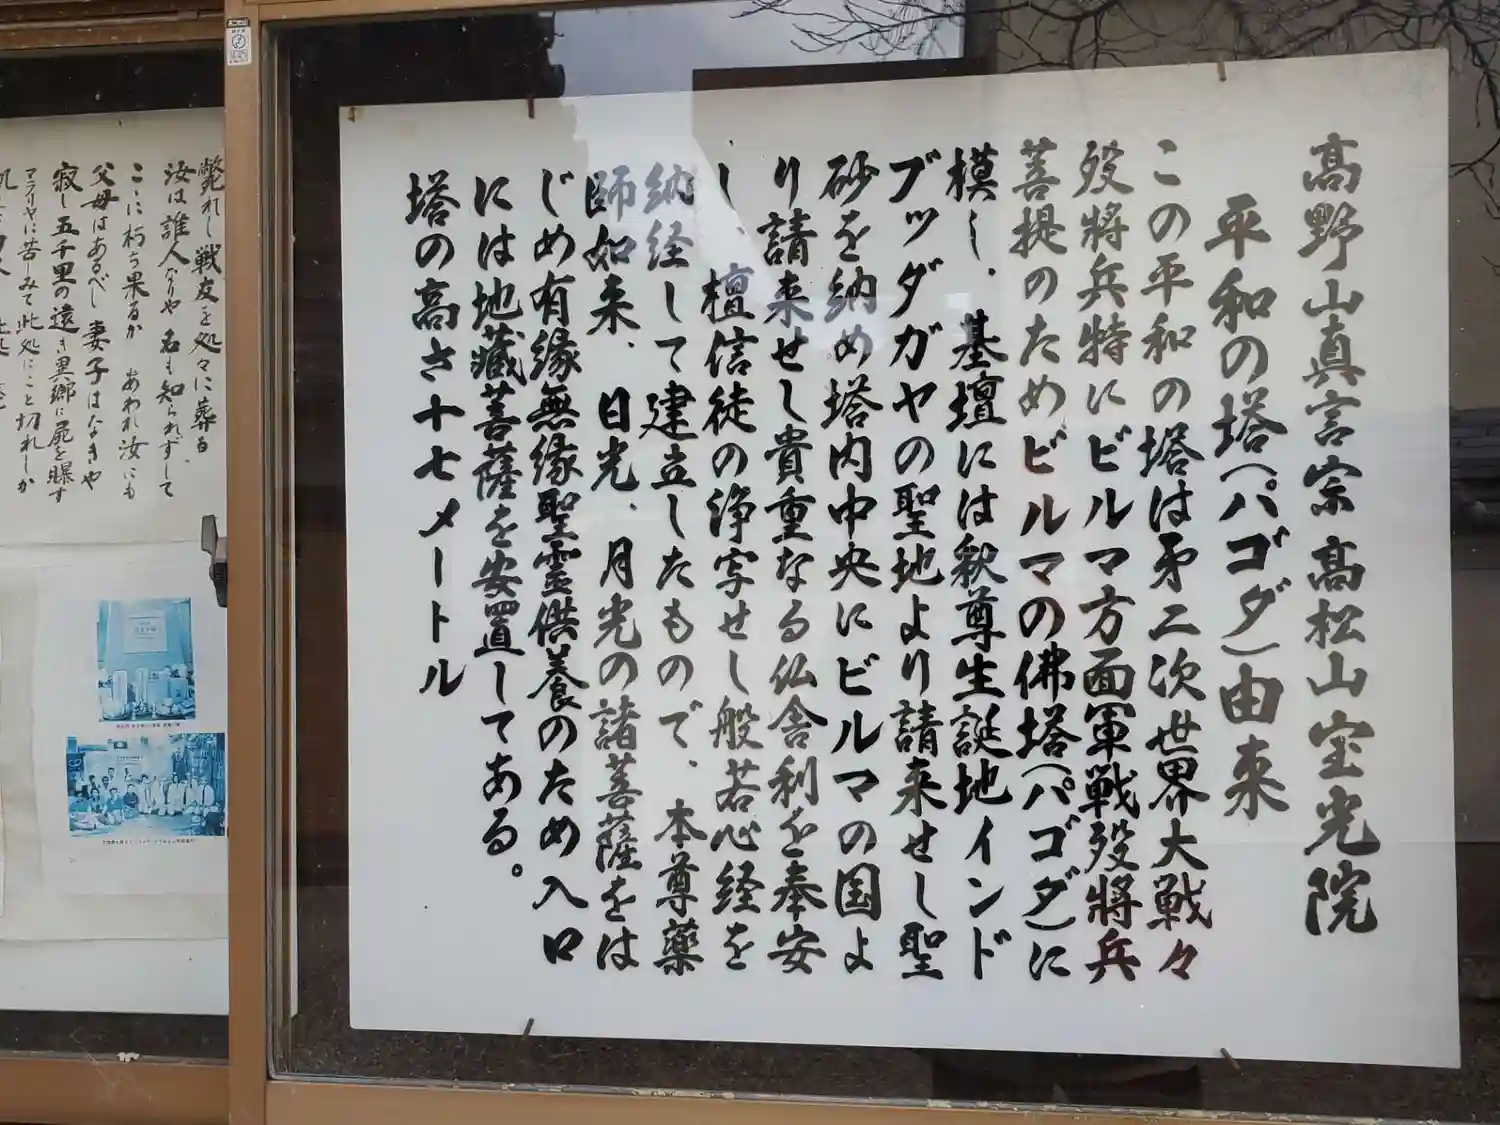 高野山真言宗 高松山宝光院
平和の塔(パゴダ)由来
この平和の塔は㐧二次世界大戦々
歿將兵特にビルマ方面軍戦歿將兵
菩提のためビルマの佛塔(パゴダ)に
模し、基壇には釈尊生誕地インド
ブッダガヤの聖地より請来せし聖
砂を納め塔内中央にビルマの国よ
り請来せし貴重なる仏舎利を奉安
し、檀信徒の浄写せし般若心経を
納経して建立したもので、本尊薬
師如来、日光、月光の諸菩薩をは
じめ有縁無縁聖霊供養のため入口
には地藏菩薩を安置してある。
塔の高さ十七メートル
斃れし戦友を処々に葬る
汝は誰人なりや 名も知られずして
こゝに朽ち果るか あわれ汝にも
父母はあるべし 妻子はなきや
寂し五千里の遠き異郷に屍を曝す
マラリヤに苦しみて此処にこと切れしか